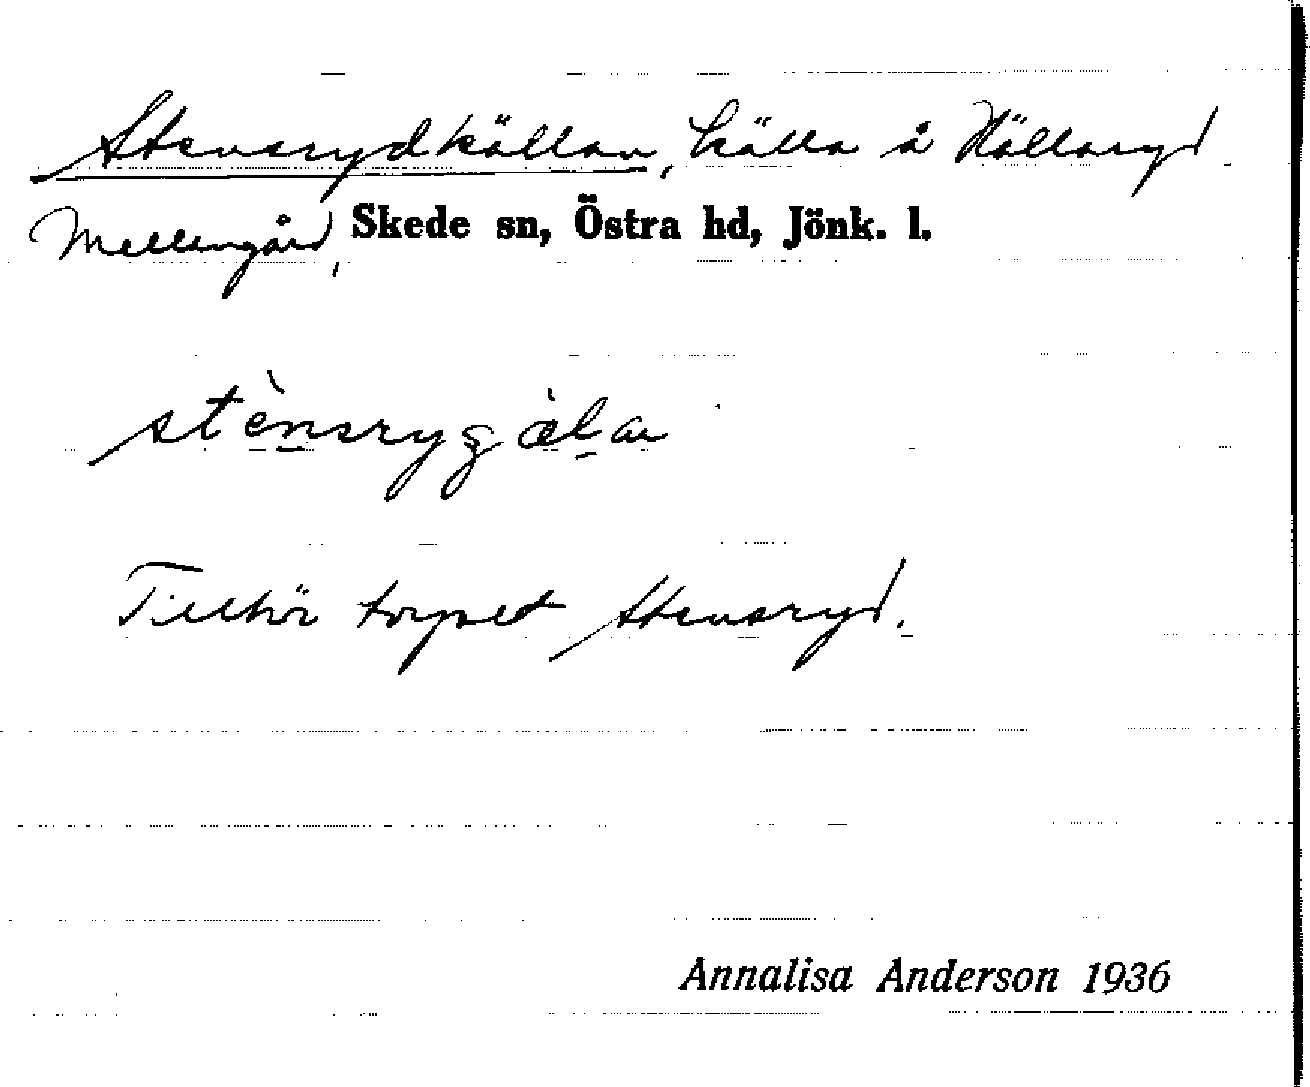 Stensrydkällan, källa å Källaryd
Mellangård, Skede sn, Östra hd, Jönk. l.
stènsrygälan
Tillhör torpet Stensryd.
Annalisa Anderson 1936